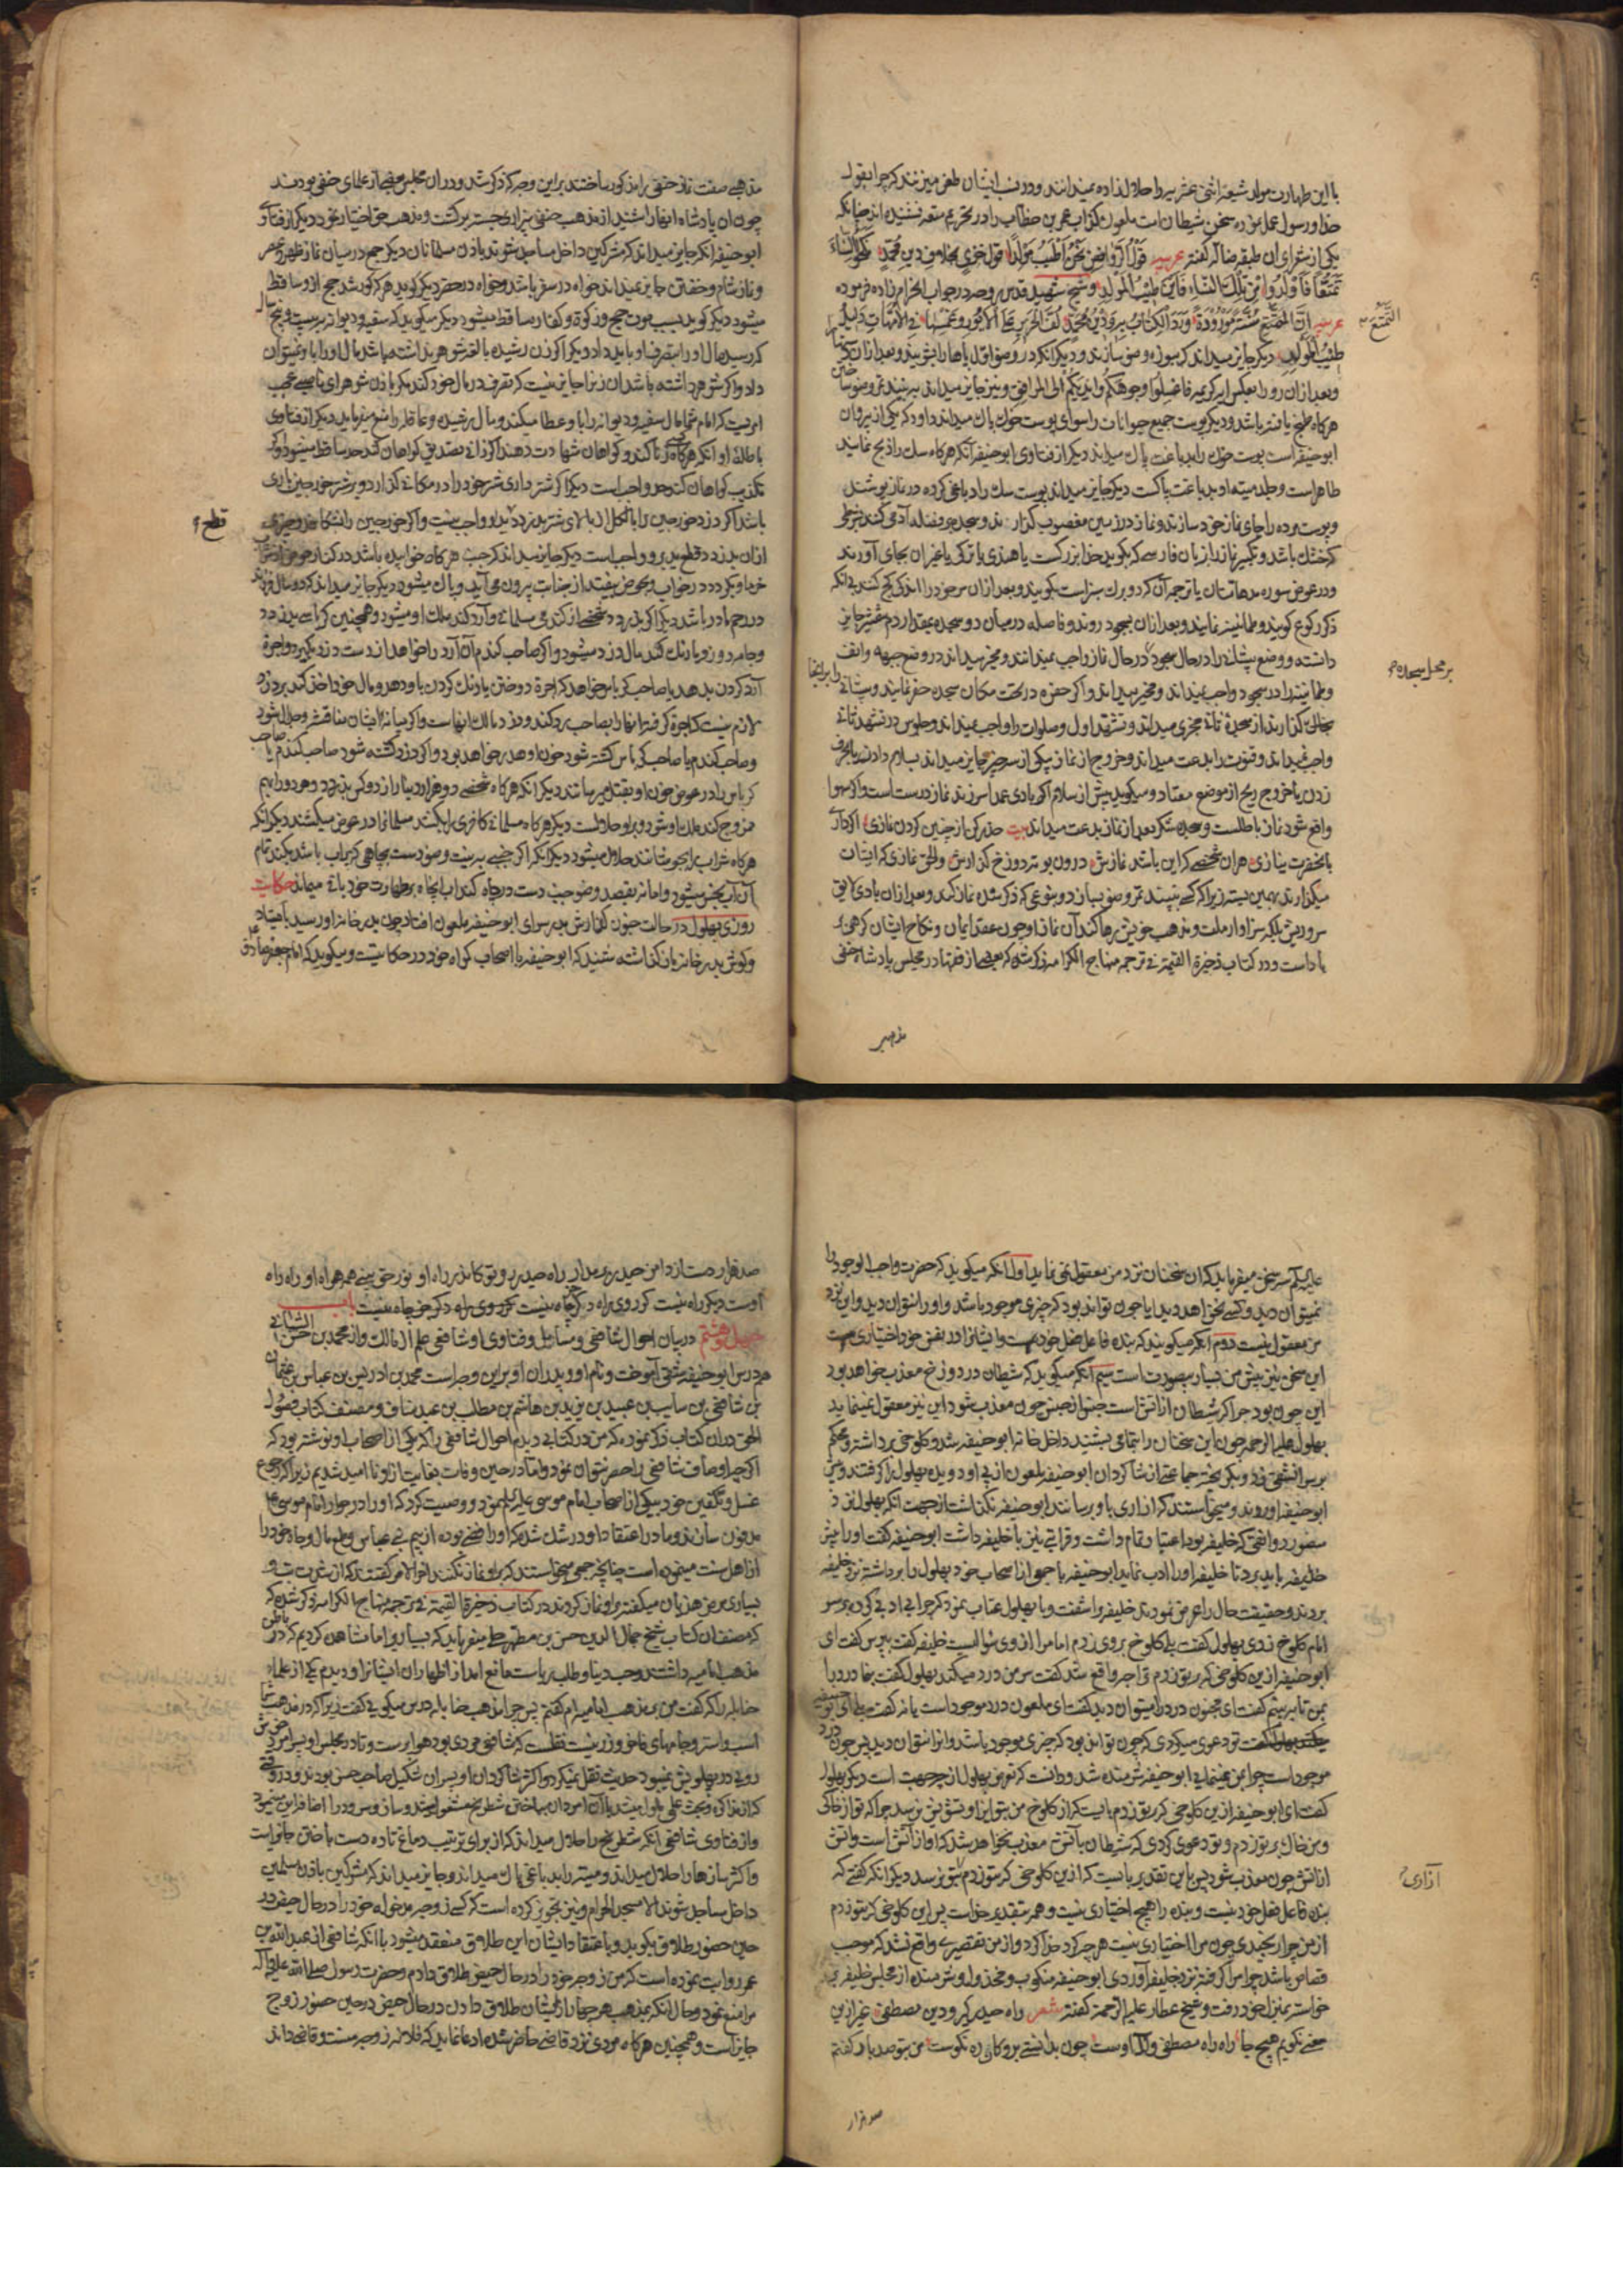 با این طهارت مولد شیعه اثنی عشریه را حلال زاده نمیدانند و در نسب ایشان طعن میزنند که چرا بقول
خدا و رسول عمل نموده سخن شیطان است ملعون کذاب عمر بن خطاب را در تحریم متعه نشنیده اند چنانکه
یکی از شعرای آن طبقه ضاله گفته عربیه قول الروافض نحن اطیب مولدا قول جری بخلاف دین محمد نکحوا النساء
تمتعا فولدوا من تلک النساء فاین طیب المولد و شیخ شهید قدس روحه در جواب الحرام زاده فرموده
عربیه ان التمتع سنة مورودة ورد الکتاب بها و دین محمد
التمتع
طیب المولد دیگر جایز میداند که
و بعد از آن رو را بعکس آیه کریمه فاغسلوا وجوهکم و ایدیکم الی المرافق و نیز جایز میداند
هرگاه طبخ یافته باشد و دیگر پوست جمیع حیوانات را سوای پوست خوک پاک میداند و داود که یکی از پیروان
ابو حنیفه است پوست خوک را بدباغت پاک میداند دیگر از فتاوی ابو حنیفه آنکه هرگاه سک را ذبح نمایند
طاهر است و جلد میته او بدباغت پاکست دیگر جایز میداند پوست سک را دباغی کرده در نماز پوشند
و پوست مرده را جای نماز خود سازند و نماز در زمین مغصوب گذارند و سجده بر فضله آدمی کنند بشرطی
که خشک باشد و تکبیر نماز را از زبان فارسی که بگوید خدا بزرگست یا هندی یا ترکی یا غیر آن بجای آورند
و در عوض سوره مدهامتان یا ترجمه آن که دو برک سبز است بگویند و بعد از آن سر خود را اندکی کج کنند بی آنکه
ذکر رکوع گویند و طمانینه نمایند و بعد از آن بسجود روند و فاصله در میان دو سجده بمقدار دم شمشیر جایز
داشته و وضع پیشانی را در حال سجود در حال نماز واجب نمیدانند و مخیر میداند در وضع جبهه و انف
بر محل سجده
و طمانینه را در سجود واجب نمیداند و مخیر میداند و اگر حفره در تحت مکان سجده حفر نمایند و پیشانی
بحالی گذارند از سجده ثانی مجزی میداند و تشهد اول و صلوات را واجب نمیداند و جلوس در تشهد ثانی
واجب میداند و قنوت را بدعت میداند و خروج از نماز بیکی از سه چیز جایز میداند بسلام دادن یا بحرف
زدن یا خروج ریح از موضع معتاد و میگوید پیش از سلام اگر بادی عمدا سر زند نماز درست است و اگر سهوا
واقع شود نماز باطلست و سجده شکر بعد از نماز بدعت میداند بیت حذر کن از چنین کردن نمازی اگر داری
بآنحضرت نیازی هر آن شخصی که این باشد نمازش درون بوته دوزخ گدازش و الحق نمازی که ایشان
سر و ریش بلکه سزاوار ملت و مذهب خویش رها کند آن نماز او چون عقد ایمان و نکاح ایشان
یا داست و در کتاب ذخیرة القیمة فی ترجمه منهاج الکرامه مذکور شده که بعضی از فقها در مجلس پادشاه حنفی
مذهبی
مذهبی صفت نماز حنفی را مذکور ساختند براین وجه که ذکر شد و در آن مجلس بعضی از علمای حنفی بودند
چون آن پادشاه اینها را شنید از مذهب حنفی بیزاری جسته برگشت و مذهب حق اختیار نمود دیگر از فتاوی
ابو حنیفه آنکه جایز میداند که مشرکین داخل مساجد شوند باذن مسلمانان دیگر جمع در میان نماز ظهر و عصر
و نماز شام و خفتن جایز نمیداند خواه در سفر باشد و خواه در حضر دیگر گوید هر که کور شد حج از او ساقط
میشود دیگر گوید بسبب موت حج و زکوة و کفاره ساقط میشود دیگر میگوید که سفیه و دیوانه بیست و پنج سال
که رسید مال او را بتصرف او باید داد و دیگر اگر زن رشیده بالغه شوهر نداشته باشد مال او را باو نمیتوان
داد و اگر شوهر داشته باشد آن زن را جایز نیست که تصرف در مال خود کند مگر باذن شوهر ای ناصبی عجب
امریست که امام شما مال سفیه و دیوانه را باو عطا میکند و مال رشیده و عاقله را منع میفرماید دیگر از فتاوی
باطله او آنکه هرگاه کسی زنا کند و گواهان شهادت دهند اگر زانی تصدیق گواهان کند حد ساقط میشود و اگر
تکذیب گواهان کند حد واجب است دیگر اگر شترداری شتر خود را در مکانی گذارد و بر شتر خورجین باری
باشد اگر دزد خورجین را بالکل از بالای شتر بدزدد بر او واجب نیست و اگر خورجین را شکافد و چیزی
قطع
از آن بدزدد قطع ید بر او واجب است دیگر جایز میداند که جنب هرگاه خوابیده باشد در کنار حوض
در رحم مادر باشد دیگر اگر بدزدد شخصی از کندم مسلمانی و آرد کند ملک او میشود و همچنین کرباسی بدزدد
و جامه دوزد یا رنک کند مال دزد میشود و اگر صاحب کندم آن آرد را خواهد از دست دزد بگیرد و اجرة
آرد کردن بدهد یا صاحب کرباس خواهد که اجرة دوختن یا رنک کردن باو دهد و مال خود اخذ کند بر دزد
لازم نیست که اجرة گرفته آنها را بصاحب رد کند و دزد مالک آنهاست و اگر میانه ایشان مناقشه و جدال شود
و صاحب کندم یا صاحب کرباس کشته شود خون او هدر خواهد بود و اگر دزد کشته شود صاحب کندم یا صاحب
کرباس را در عوض خون او بقتل میرسانند دیگر آنکه هرگاه شخصی دو هزار دینار از دو کس بدزدد و هر دو را بهم
ممزوج کند ملک او شود و بر او حلالست دیگر هرگاه مسلمانی کافری را بکشد مسلمان را در عوض میکشند دیگر آنکه
هرگاه شراب را بجوشانند حلال میشود دیگر آنکه اگر جنبی بی نیت وضو دست بچاهی که پر آب باشد بکند تمام
آن آب نجس میشود و اما نه بقصد وضو جنب دست در چاه کند آب چاه بر طهارت خود باقی میماند حکایت
روزی بهلول در حالت جنون گذارش بدر سرای ابو حنیفه ملعون افتاد چون بدر خانه او رسید باستاد
و گوش بدر خانه بان گذاشته شنید که ابو حنیفه با اصحاب گمراه خود در حکایتست و میگوید که امام جعفر صادق
علیه السلام سه سخن میفرماید که آن سخنان نزد من معقول نمی نماید اول آنکه میگوید که حضرت واجب الوجود را
نمیتوان دید و کسی نخواهد دید ایا چون تواند بود که چیزی موجود باشد و او را نتوان دید و این نزد
من معقول نیست دوم آنکه میگویند که بنده فاعل فعل خود است و ایشان را در نفس خود اختیاری هست
این سخن نیز پیش من بسیار بیصورت است سیم آنکه میگوید که شیطان در دوزخ معذب خواهد بود
این چون بود چرا که شیطان از آتش است جنس از جنس چون معذب شود این نیز معقول نمینماید
بهلول علیه الرحمه چون این سخنان را تمامی بشنید داخل خانه ابو حنیفه شد و کلوخی برداشته و محکم
بر سر آن شقی زد و بگریخت جماعتی از شاگردان ابو حنیفه ملعون از پی او دویده بهلول را گرفتند و پیش
ابو حنیفه آوردند و میخواستند که آزاری باو برسانند ابو حنیفه نگذاشت از جهت آنکه بهلول نزد
منصور دوانقی که خلیفه بود اعتبار تمام داشت و قرابتی نیز با خلیفه داشت ابو حنیفه گفت او را پیش
خلیفه باید برد تا خلیفه او را ادب نماید ابو حنیفه با جمعی از اصحاب خود بهلول را برداشته نزد خلیفه
بردند و حقیقت حال را عرض نمودند خلیفه برآشفت و با بهلول عتاب نمود که چرا بی ادبی کرده بر سر
امام کلوخ زدی بهلول گفت بلی کلوخ بر وی زدم اما مرا از وی سؤالیست خلیفه گفت بپرس گفت ای
ابو حنیفه از این کلوخی که بر تو زدم ترا چه واقع شد گفت سر من درد میکند بهلول گفت بخدا درد را
بمن بنما تا ببینم گفت ای مجنون درد را میتوان دید گفت ای ملعون درد موجود است یا نه گفت
گفت تو دعوی میکردی که چون تواند بود که چیزی موجود باشد و او را نتوان دید پس چون درد
موجود است چرا بمن نمینمایی ابو حنیفه شرمنده شد و دانست که تعرض بهلول از چه جهت است دیگر بهلول
گفت ای ابو حنیفه از این کلوخی که بر تو زدم بایست که از کلوخ من بتو ایذا و تشویش نرسد چرا که تو از خاکی
و من خاک بر تو زدم و تو دعوی کردی که شیطان بآتش معذب نخواهد شد که او از آتش است و آتش
از آتش چون معذب شود پس باین تقدیر بایست که از این کلوخی که بتو زدم بتو نرسد دیگر آنکه گفتی که
آزاری
بنده فاعل فعل خود نیست و بنده را هیچ اختیاری نیست و همه بتقدیر خداست پس این کلوخی که بتو زدم
از من چرا رنجیدی چون مرا اختیاری نیست هر چه کرد خدا کرد و از من تقصیری واقع نشد که موجب
قصاص باشد چرا مرا گرفته نزد خلیفه آوردی ابو حنیفه منکوب و مخذول و شرمنده از مجلس خلیفه بر
خواسته بمنزل خود رفت و شیخ عطار علیه الرحمة گفته شعر راه حیدر گیر و دین مصطفی غیر ازین
معنی نگویم هیچ جا راه راه مصطفی و آل اوست چون بدانستی برو کان ره نکوست من بتو صد بار گفتم
صد هزار
صد هزار دست از دامن حیدر مدار راه حیدر رو تو کاندر راه او نور حق بینی همه همراه او راه راه
اوست دیگر راه نیست گر روی راه دگر جز چاه نیست باب
چهل و هشتم در بیان احوال شافعی و مسائل و فتاوی او شافعی علم از مالک و از محمد بن حسن الشیبانی
در درس ابو حنیفه سنی آموخت و نام او و پدران او براین وجه است محمد بن ادریس بن عباس بن عثمان
بن شافعی بن سایب بن عبید بن یزید بن هاشم بن مطلب بن عبد مناف و مصنف کتاب فصول
الحق در آن کتاب ذکر نموده که من در کتابی دیدم احوال شافعی را که یکی از اصحاب او نوشته بود که
اگر چه اوصاف شافعی را حصر نتوان نمود و اما در حین وفات بغایت از او نا امید شدیم زیرا که رجوع
غسل و تکفین خود بیکی از اصحاب امام موسی علیه السلام نمود و وصیت کرد که او را در جوار امام موسی
مدفون سازند و ما در اعتقاد او در شک شدیم که او رافضی بوده از بیم بنی عباس و طمع مال و جاه خود را
از اهل سنت مینموده است چنانچه جمعی میخواستند که بر او نماز نکنند آخر الامر گفتند که از شدت تب و
بیماری مرض هذیان میگفته بر او نماز کردند در کتاب ذخیرة القیمة فی ترجمه منهاج الکرامه ذکر شده که
که مصنف آن کتاب شیخ جمال الدین حسن بن مطهر حلی میفرماید که بسیاری را ما مشاهده کردیم که در باطن
مذهب امامیه داشتند و حب دنیا و طلب ریاست مانع آمد از اظهار آن ایشان را و دیدم یکی از علمای
حنابله را که گفت من بر مذهب امامیه ام گفتم پس چرا بمذهب حنابله درس میگویی گفت زیرا که در مذهب شما
اسب و استر و جامهای فاخر و زر نیست نقلست که شافعی مردی بود هواپرست و تا در مجلس او پسر امرد خوش
رویی در پهلویش نمیبود حدیث نقل نمیکرد و اکثر شاگردان او پسران شکیل صاحب حسن بودند و در وقتی
که از مذاکره و بحث علمی ملول میشد با آن امردان بباختن شطرنج مشغول میشد و ساز و سرود را اضافه این مینمود
و از فتاوی شافعی آنکه شطرنج را حلال میداند که از برای ترتیب دماغ تا ده دست باختن جایز است
و اکثر سازها را حلال میداند و میته را بدباغی پاک میداند و جایز میداند که مشرکین باذن مسلمین
داخل مساجد شوند الا مسجد الحرام و نیز تجویز کرده است که کسی زوجه مدخوله خود را در حال حیض در
حین حضور طلاق بگوید و باعتقاد ایشان این طلاق منعقد میشود با آنکه شافعی از عبد الله بن
عمر روایت نموده است که من زوجه خود را در حال حیض طلاق دادم و حضرت رسول صلی الله علیه و آله
مرا منع نمود و حال آنکه بمذهب هر چهار از ایشان طلاق دادن در حال حیض در حین حضور زوج
جایز است و همچنین هرگاه مردی نزد قاضی حاضر شده ادعا نماید که فلانه زوجه منست و قاضی داند